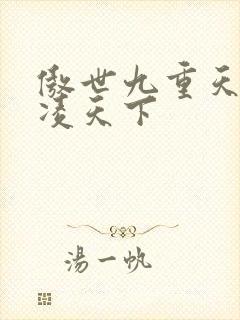 傲世九重天
凌天下
湯一帆